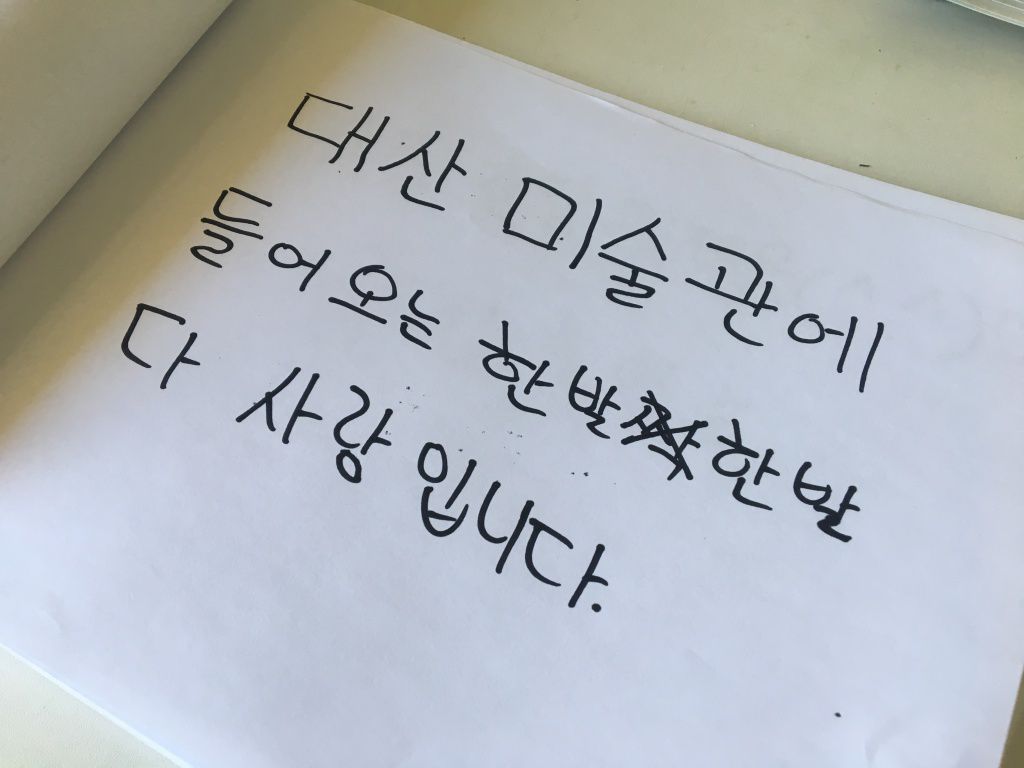 대산 미술관에
들어오는 한발 한발
다 사랑입니다.